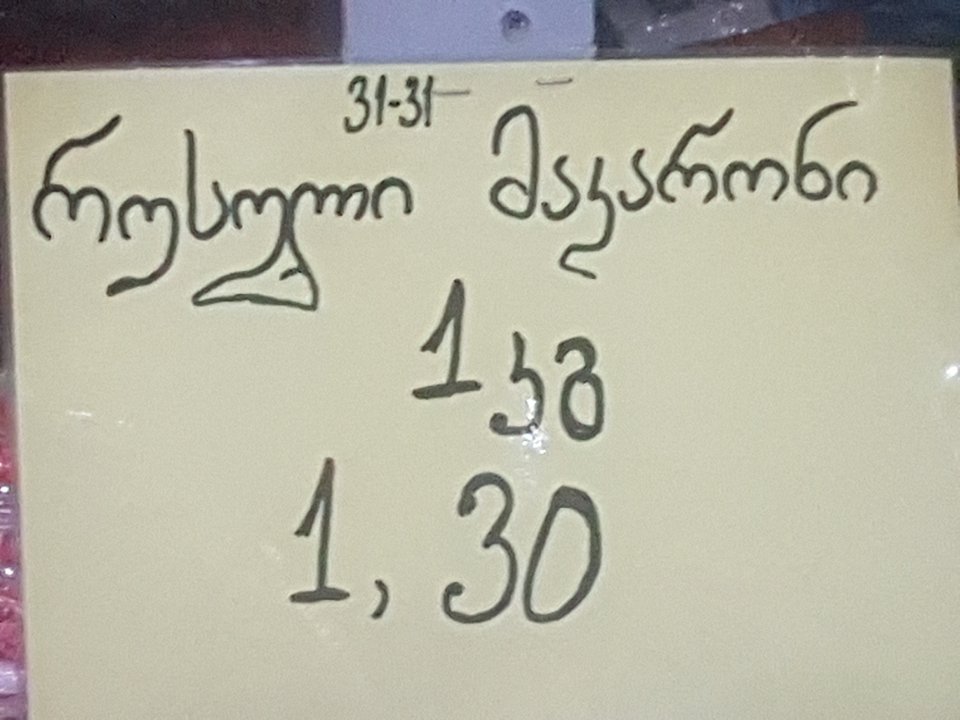 31-31
რუსული მაკარონი
1 კგ
1,30